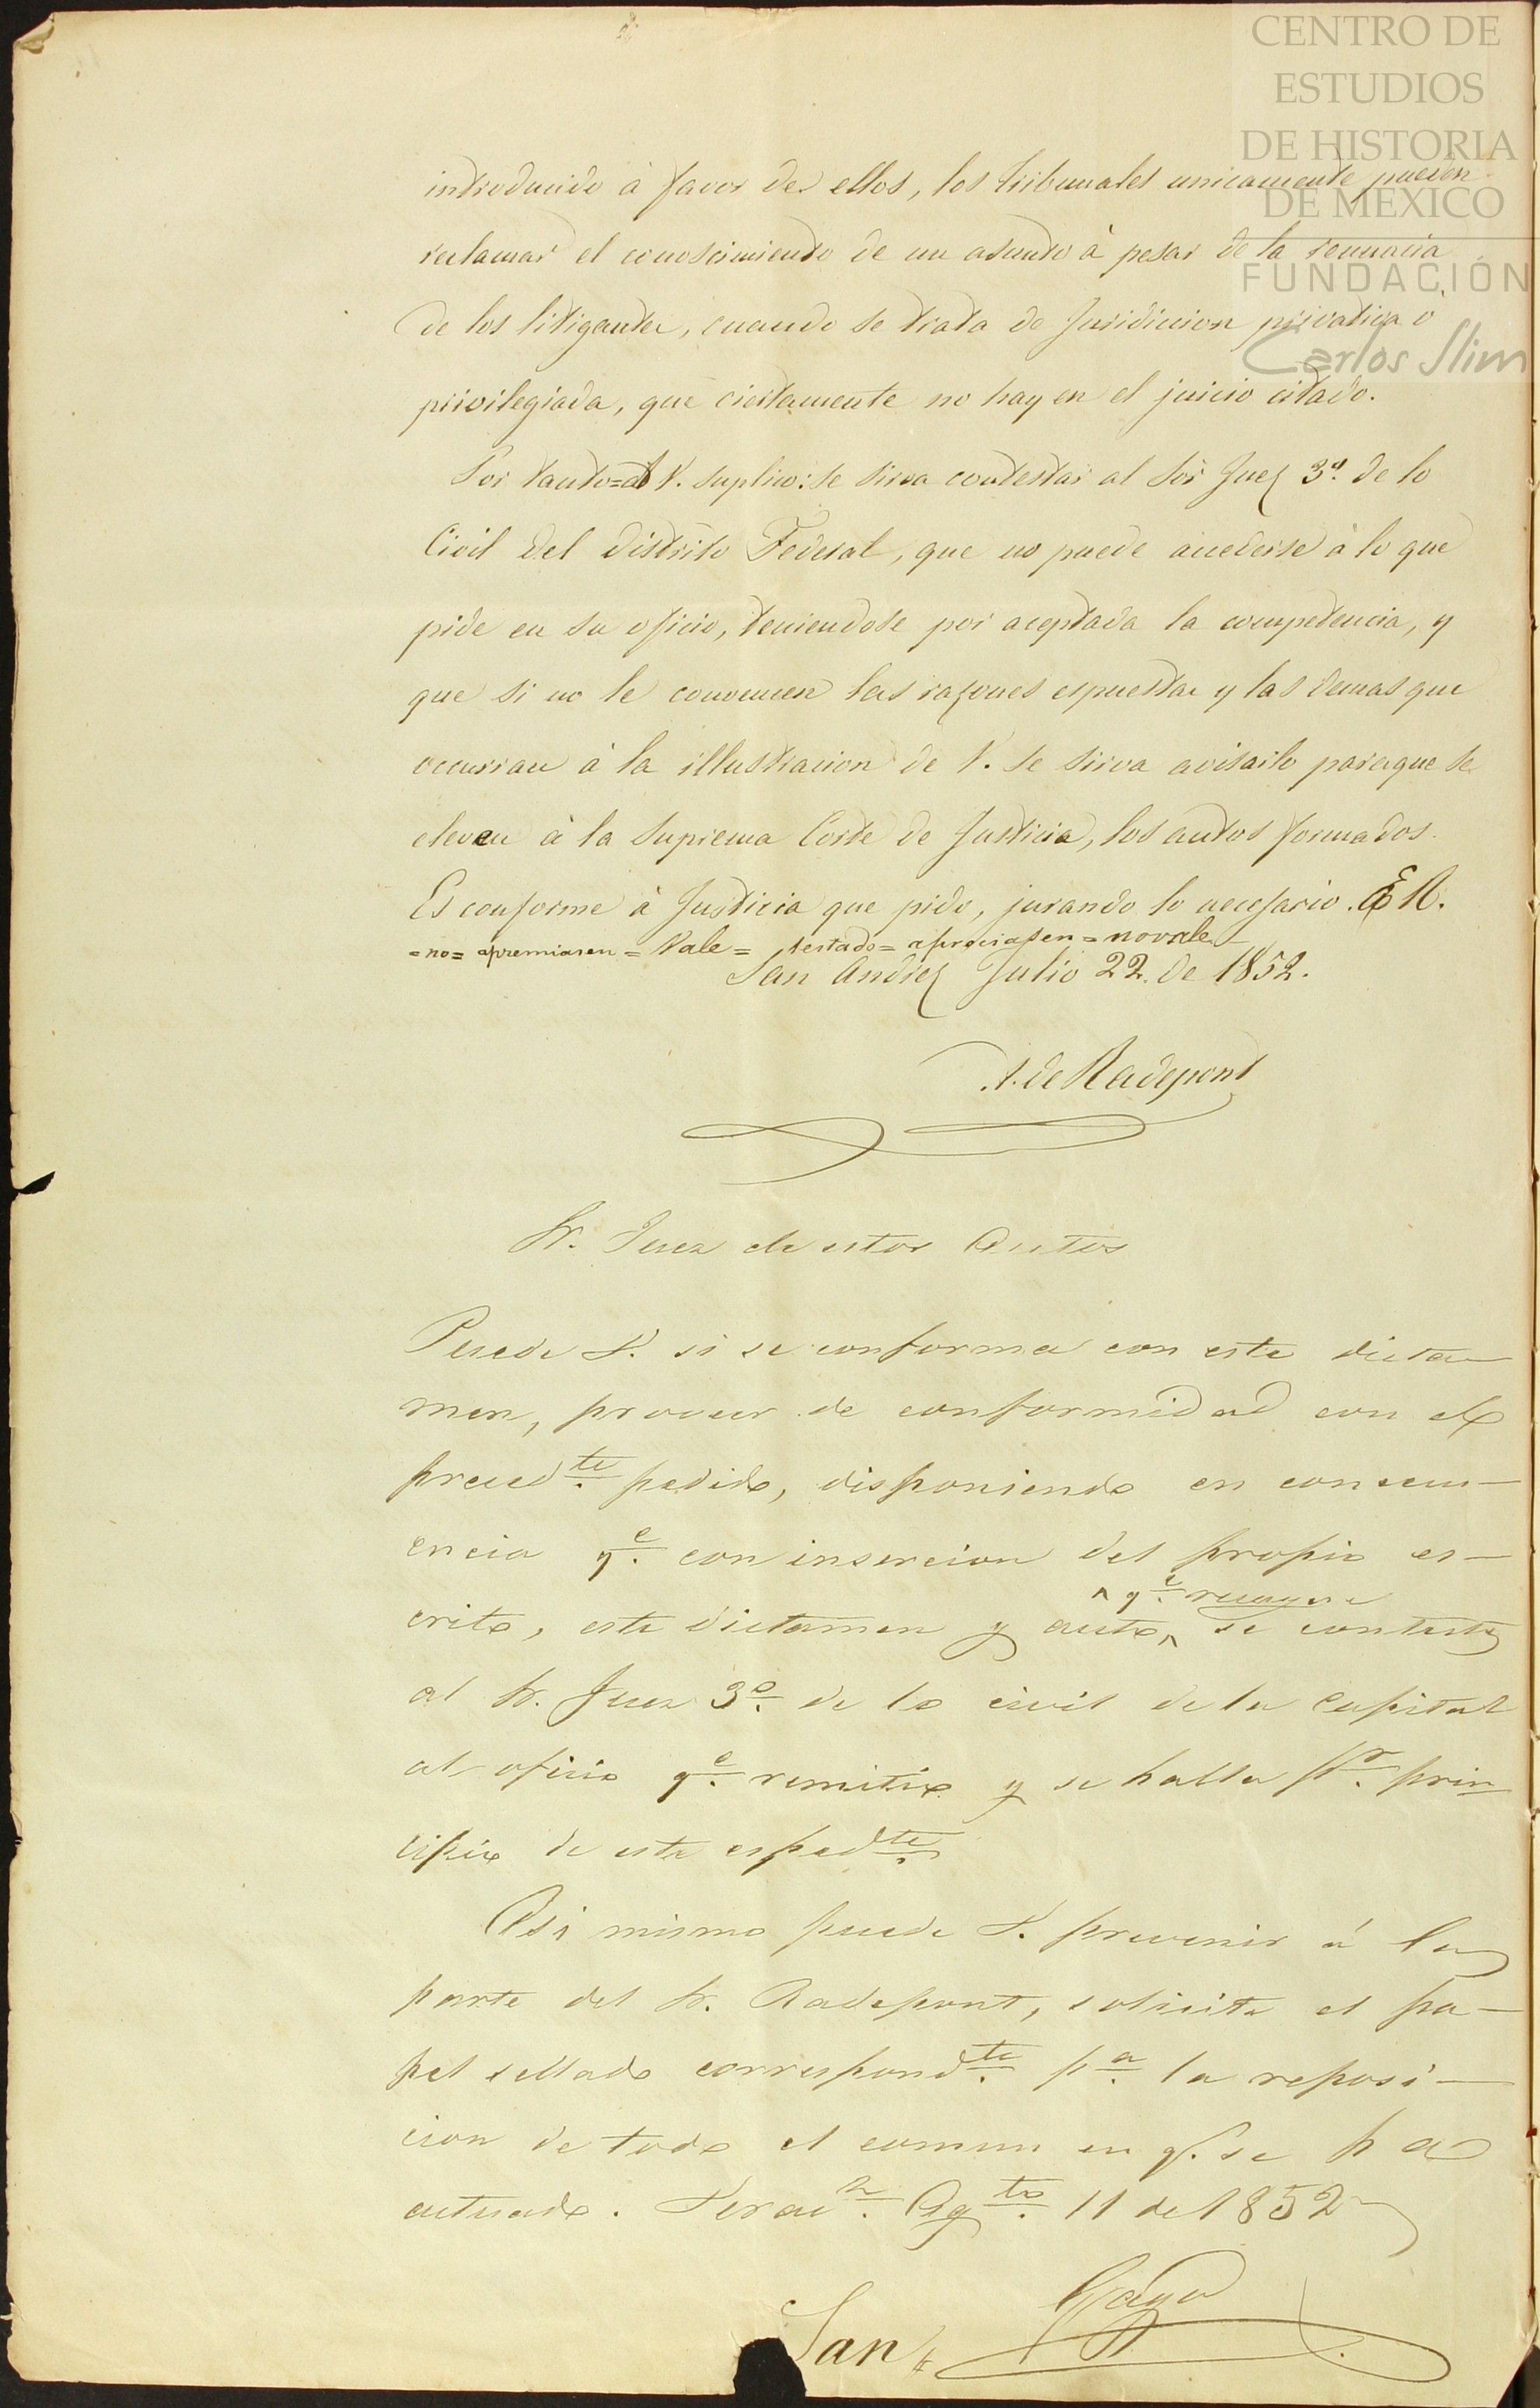 CENTRO DE
ESTUDIOS
DE HISTORIA
DE MEXICO
FUNDACIÓN
Carlos Slim
introducido à favor de ellos, los tribunales unicamente pueden
reclamar el conoscimiento de un asunto à pesar de la renuncia
de los litigantes, cuando se trata de Juridiccion privativa ò
privilegiada, que ciertamente no hay en el juicio citado.
Por tanto=a V. suplico: se sirva contestar al Sòr Juez 3º. de lo
Civil del Distrito Federal, que no puede accederse à lo que
pide en su oficio, teniendose por aceptada la competencia, y
que si no le convencen las razones espuestas y las demas que
occurran à la illustracion de V. se sirva avisarlo paraque se
eleven à la Suprema Corte de Justicia, los autos formados.
Es conforme à Justicia que pido, jurando lo necesario.
=no= apremiasen = Vale = testado= apreciasen = no vale
San Andrez Julio 22. de 1852.
A. de Radepont
Sr. Juez de estos Autos
Puede V. si se conforma con este dicta—
men, proveer de conformidad con el
preced.te pedido, disponiendo en consecu—
encia q.e con insercion del propio es—
^ q.e recayere
crito, este dictamen y auto^ se conteste
al Sr. Juez 3º. de lo civil de la Capital
al oficio q.e remitió y se halla p.r prin
cipio de este esped.te
Asi mismo puede V. prevenir á la
parte del Sr. Radepont, solicite el pa—
pel sellado correspond.te p.a la reposi—
cion de todo el comun en q. se ha
actuado. Verac.z Ag.to 11 de 1852
San